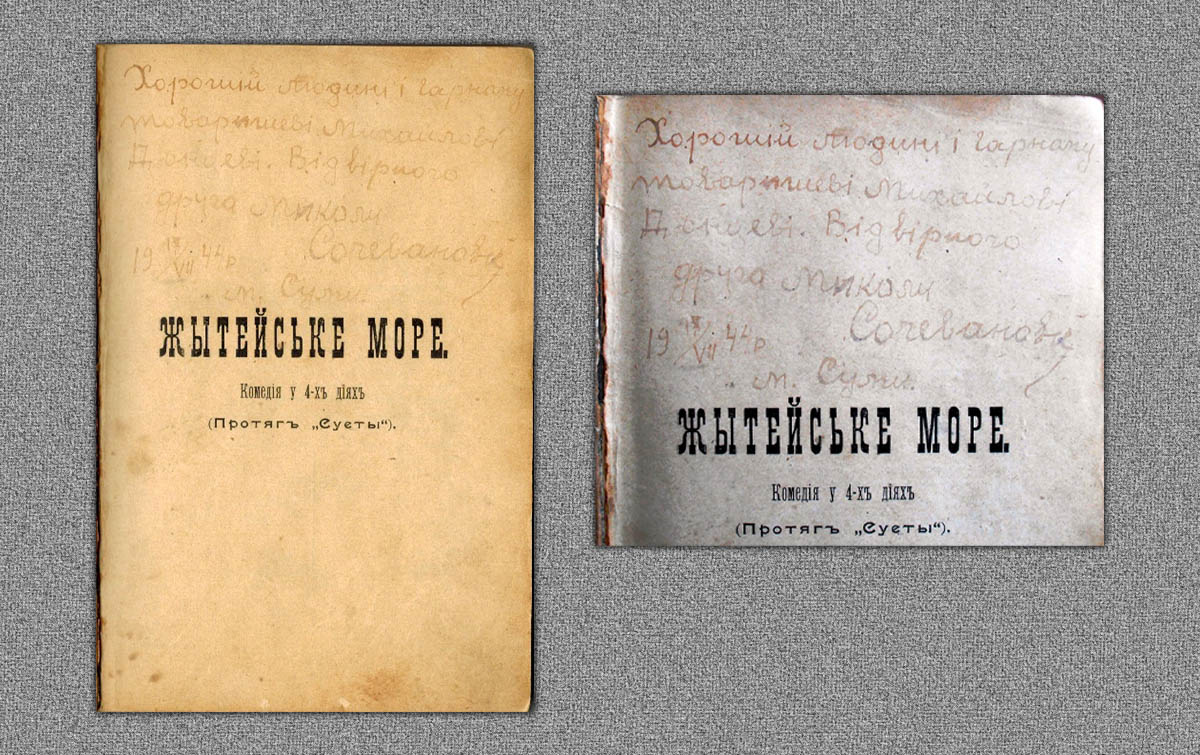 Хорошій людині і гарному
товаришеві Михайлові
Від вірного
друга Миколи
19 VII 44 р.
м. Суми.
ЖЫТЕЙСЬКЕ МОРЕ.
Комедія у 4-хъ діяхъ
(Протягъ „Суеты“).
Хорошій людині і гарному
товаришеві Михайлові
Від вірного
друга Миколи
19 VII 44 р.
м. Суми.
ЖЫТЕЙСЬКЕ МОРЕ.
Комедія у 4-хъ діяхъ
(Протягъ „Суеты“).